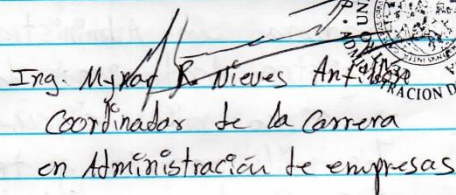 Ing. Mynor R. Nieves
Coordinador de la Carrera
en Administración de empresas